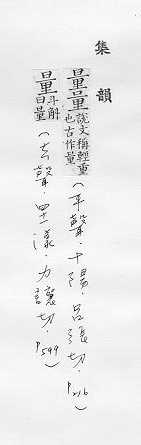 集韻
量量說文稱輕重也古作量(平聲．十陽．呂張切．P.216)
量斗斛曰量(去聲．四十一漾．力讓切．P.599)